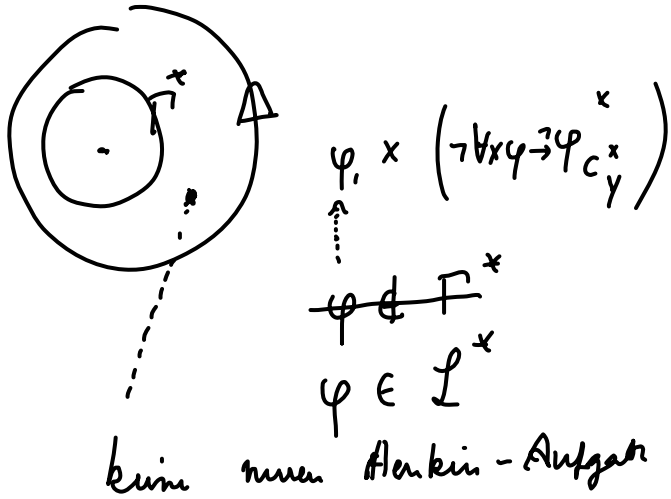 Γ*
Δ
φ, x (¬∀xφ → ¬φ^x_{c^x_y})
~~φ ∉ Γ*~~
φ ∈ L*
keine neuen Henkin-Aufgab